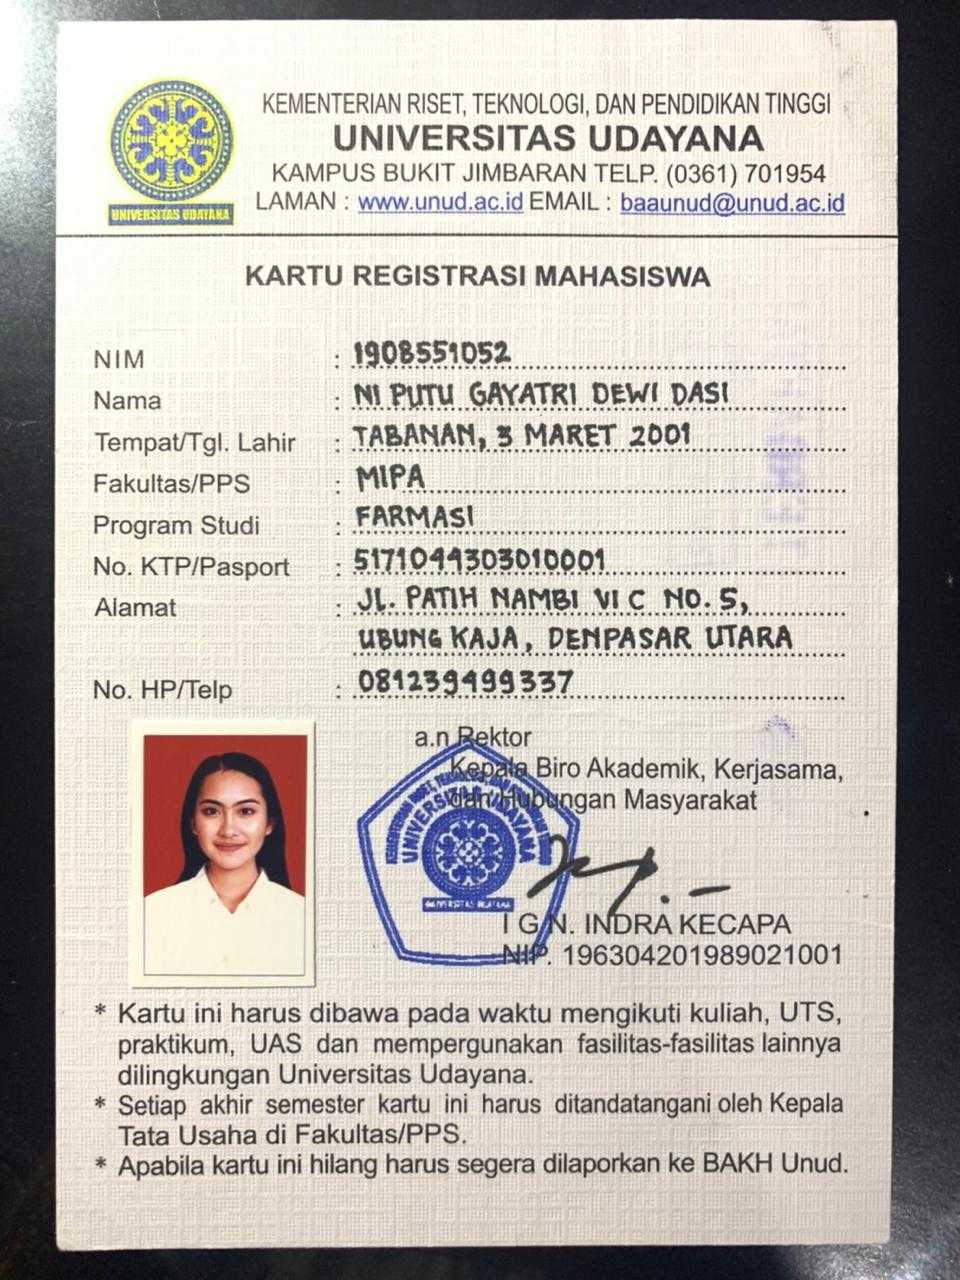 KEMENTERIAN RISET, TEKNOLOGI, DAN PENDIDIKAN TINGGI
UNIVERSITAS UDAYANA
KAMPUS BUKIT JIMBARAN TELP. (0361) 701954
LAMAN : www.unud.ac.id EMAIL : baaunud@unud.ac.id
UNIVERSITAS UDAYANA
KARTU REGISTRASI MAHASISWA
NIM : 1908551052
Nama : NI PUTU GAYATRI DEWI DASI
Tempat/Tgl. Lahir : TABANAN, 3 MARET 2001
Fakultas/PPS : MIPA
Program Studi : FARMASI
No. KTP/Pasport : 5171044303010001
Alamat : JL. PATIH NAMBI VI C NO. 5,
UBUNG KAJA, DENPASAR UTARA
No. HP/Telp : 081239499337
a.n Rektor
Kepala Biro Akademik, Kerjasama,
dan Hubungan Masyarakat
UNIVERSITAS UDAYANA
UNIVERSITAS UDAYANA
I G N. INDRA KECAPA
NIP. 196304201989021001
* Kartu ini harus dibawa pada waktu mengikuti kuliah, UTS,
praktikum, UAS dan mempergunakan fasilitas-fasilitas lainnya
dilingkungan Universitas Udayana.
* Setiap akhir semester kartu ini harus ditandatangani oleh Kepala
Tata Usaha di Fakultas/PPS.
* Apabila kartu ini hilang harus segera dilaporkan ke BAKH Unud.